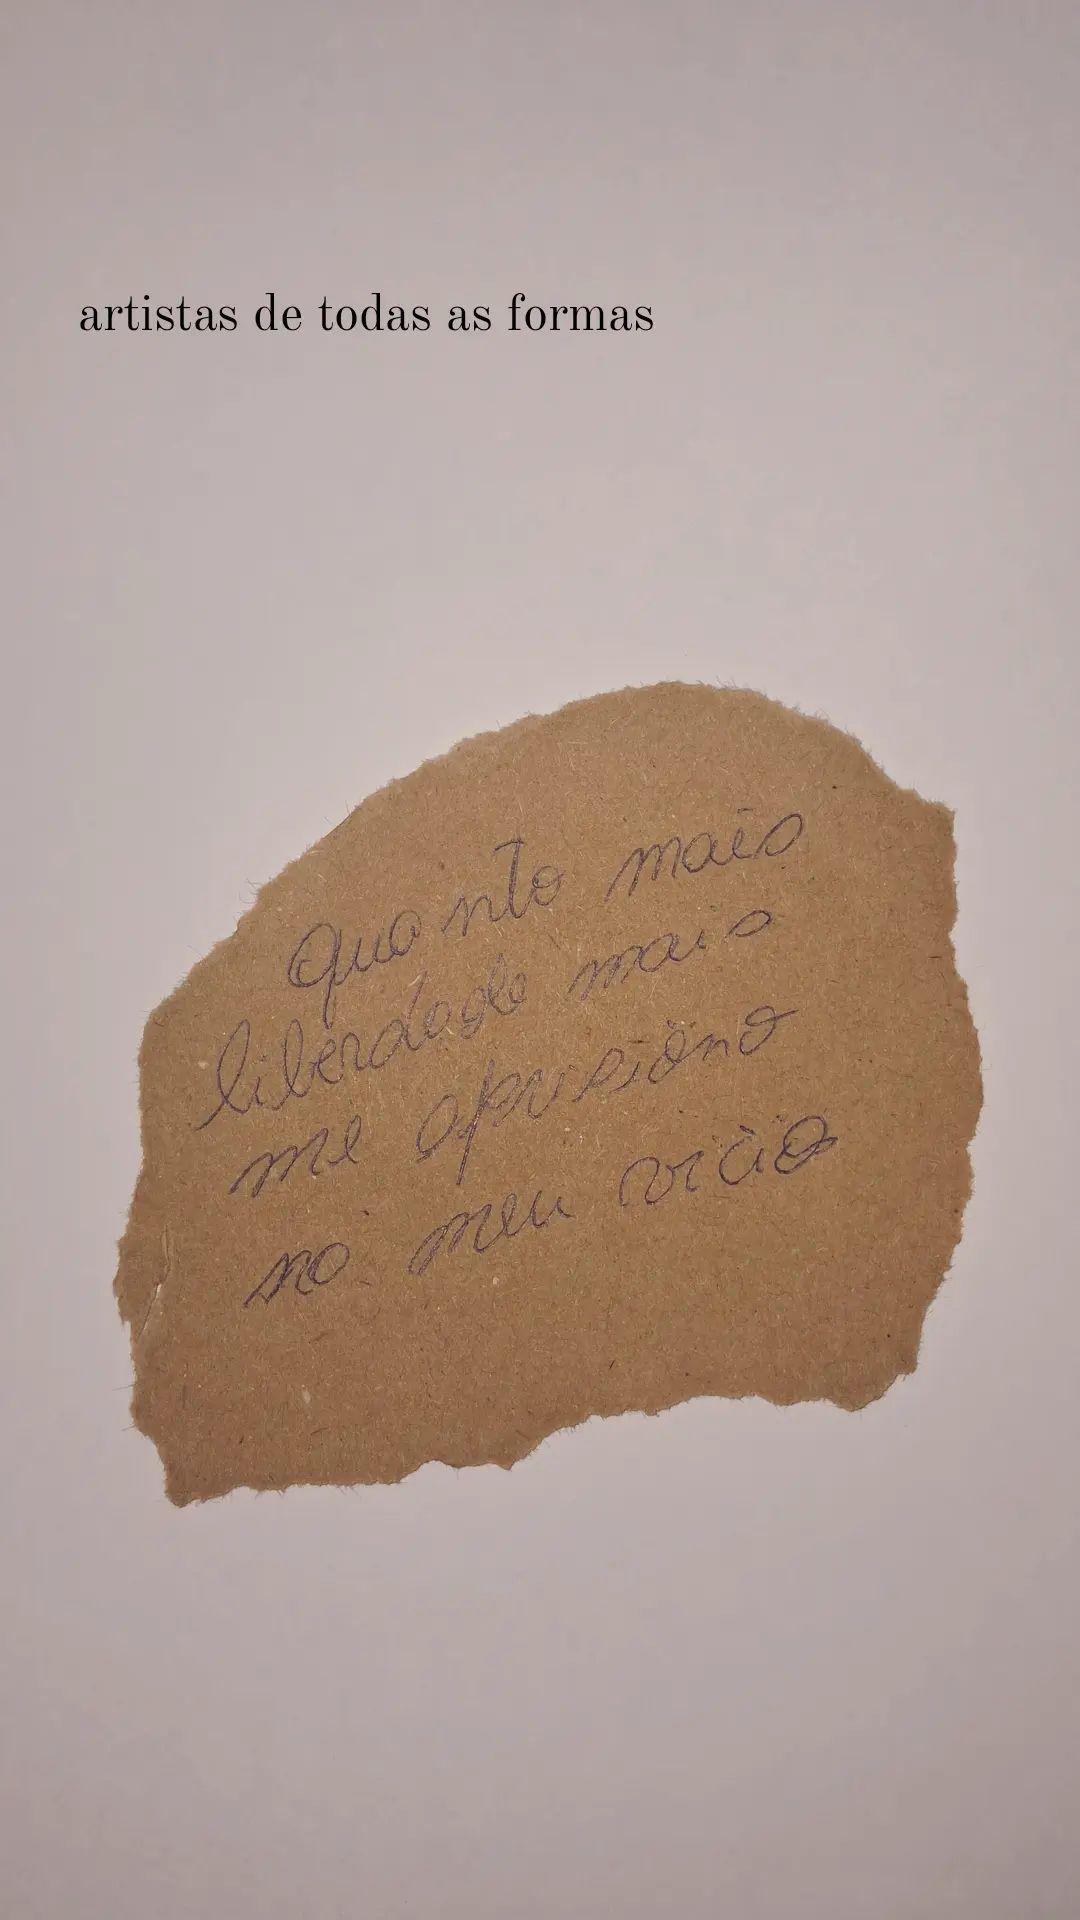 artistas de todas as formas
Quanto mais
liberdade mais
me aprisiono
no meu vício